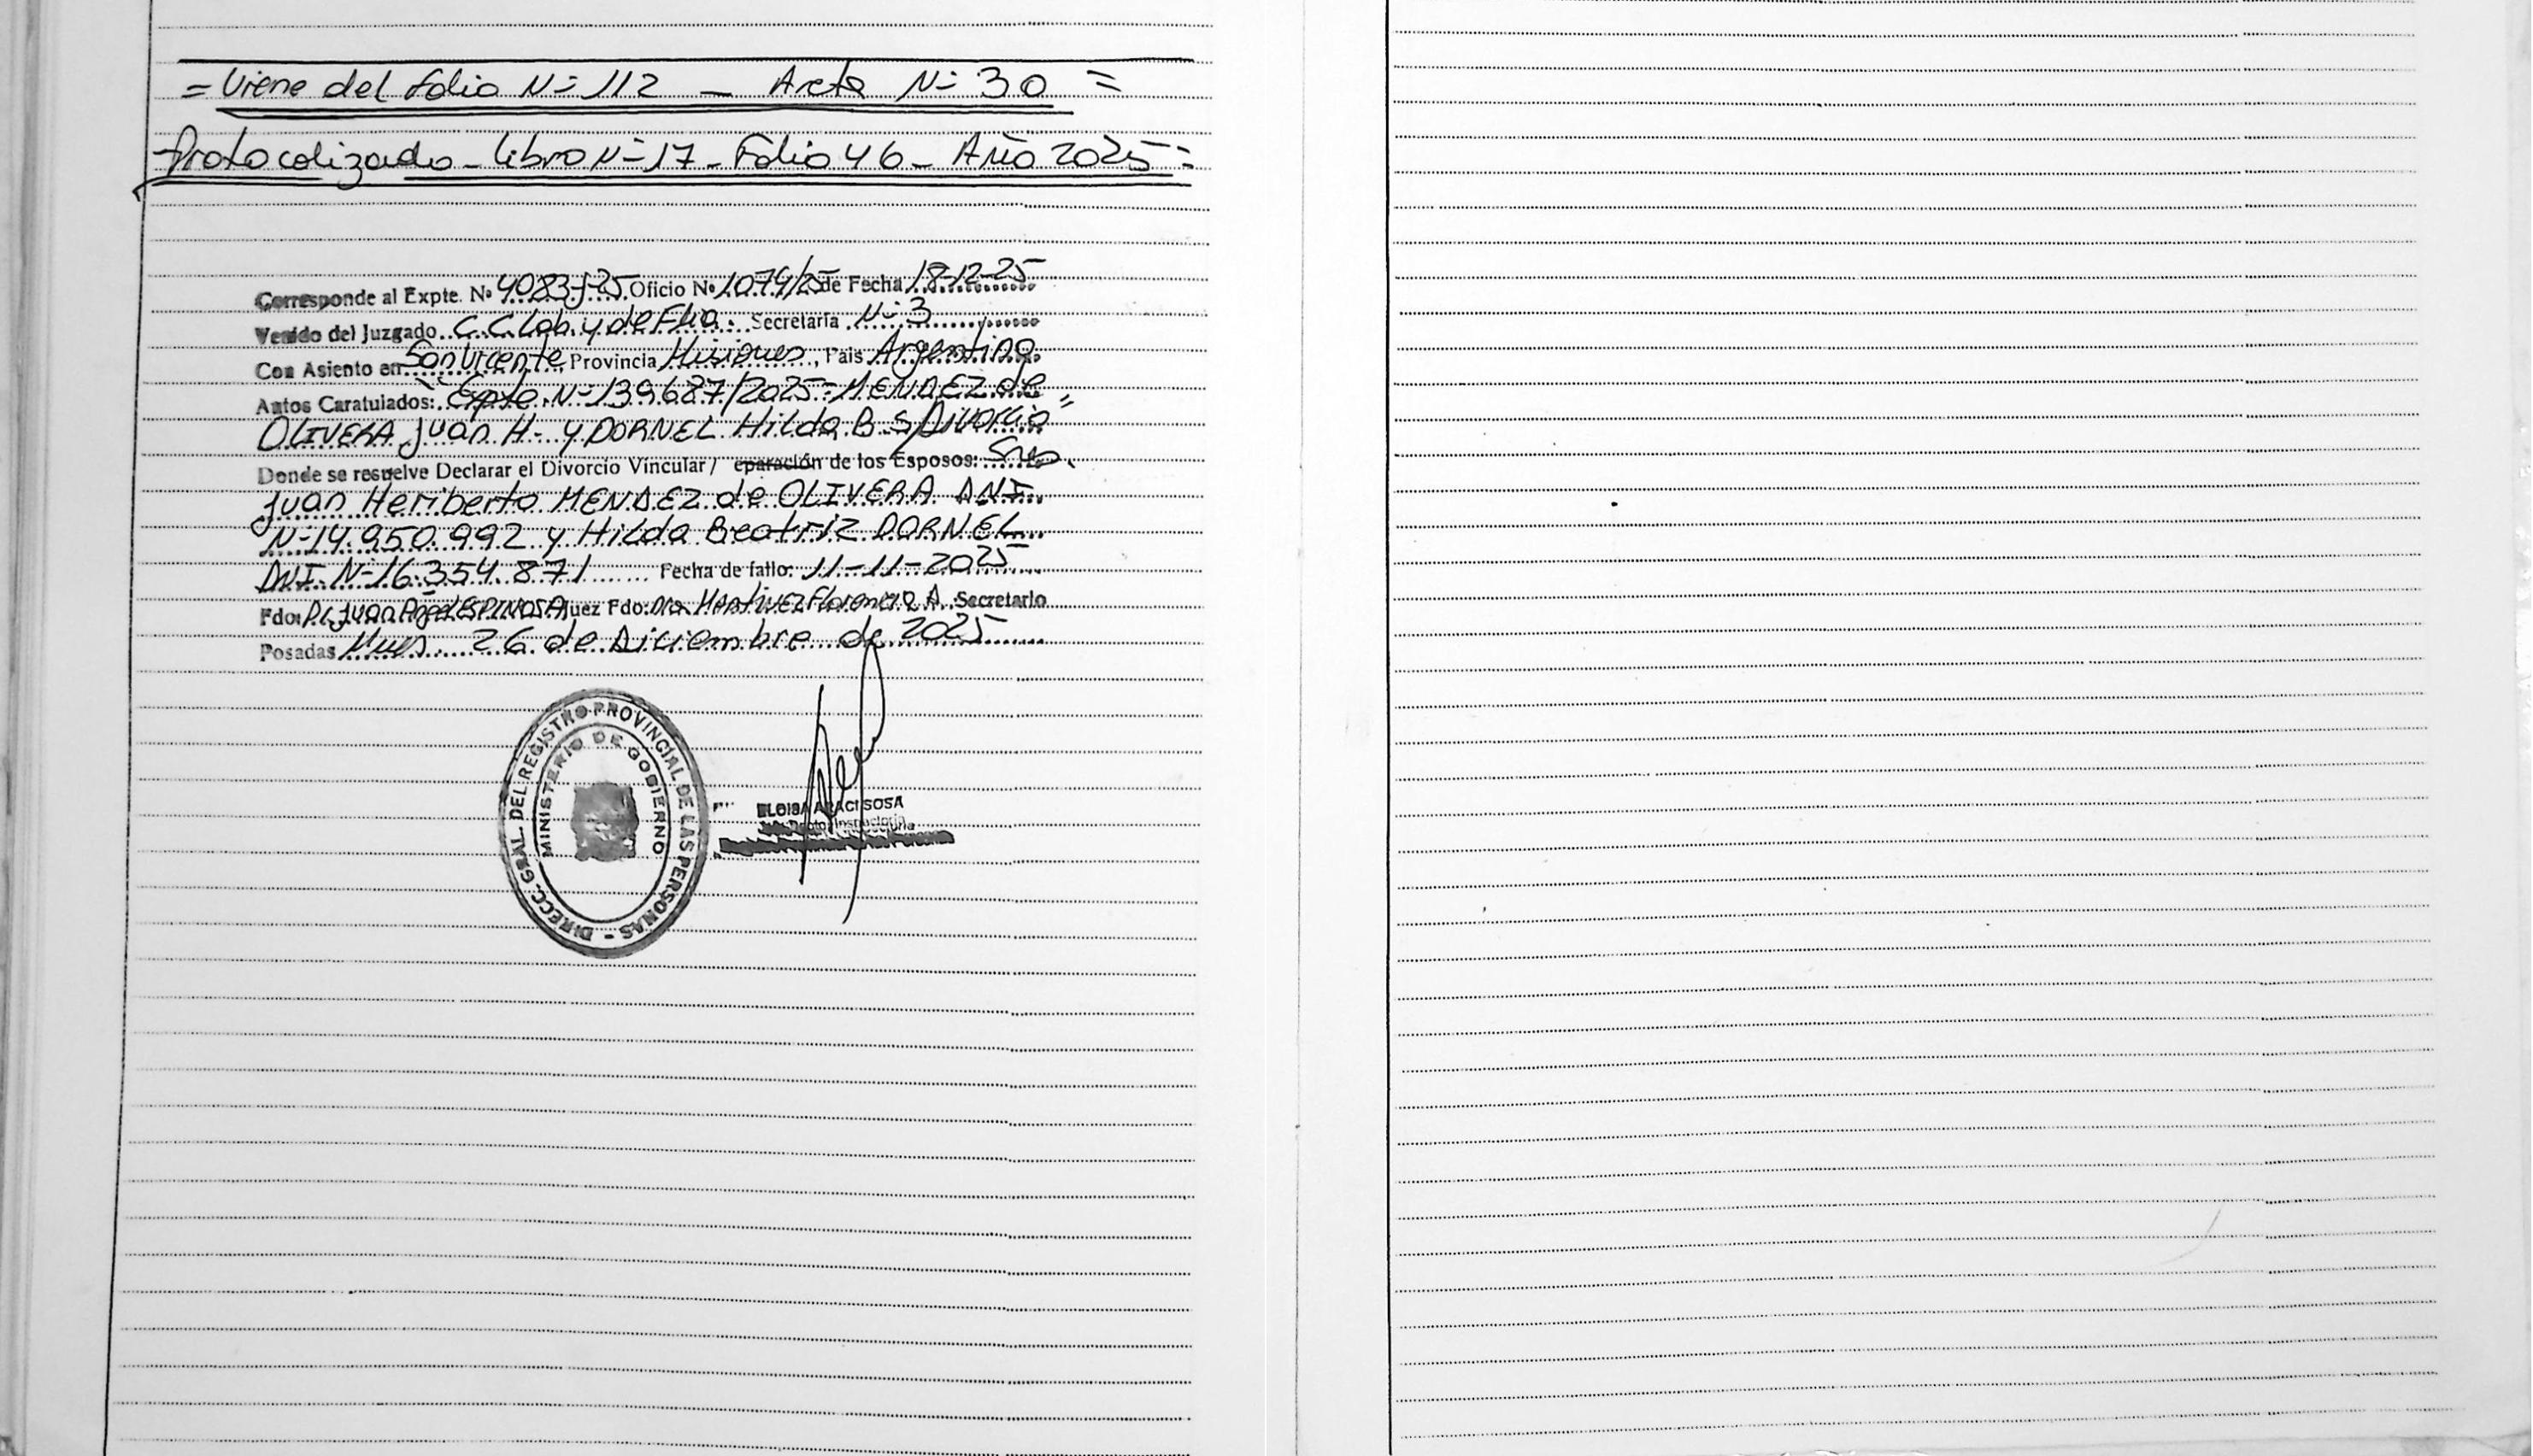 = Viene del folio N- 112 - Acta N- 30 =
Protocolizado - libro N- 17 - Folio 46 - Año 2025 =
Corresponde al Expte. Nº 4083-J-25 Oficio Nº 1074/25 de Fecha 18-12-25
Venido del Juzgado C.C. Lab. y de Flia. Secretaría N- 3
Con Asiento en San Vicente Provincia Misiones, País Argentina
Autos Caratulados: "Expte. N- 139687/2025 - MENDEZ de
OLIVERA Juan H. y DORNEL Hilda B. S/ Divorcio"
Donde se resuelve Declarar el Divorcio Vincular / eparación de los Esposos: Sres.
Juan Heriberto MENDEZ de OLIVERA DNI.
N- 14.950.992 y Hilda Beatriz DORNEL
DNI. N- 16.354.871 Fecha de fallo: 11-11-2025
Fdo: Dr. Juan Angel ESPINOSA Juez Fdo: Dra. MARTINEZ Florencia A. Secretario
Posadas Mnes. 26 de Diciembre de 2025
DIRECC. GRAL. DEL REGISTRO PROVINCIAL DE LAS PERSONAS -
MINISTERIO DE GOBIERNO
ELOISA ARACI SOSA